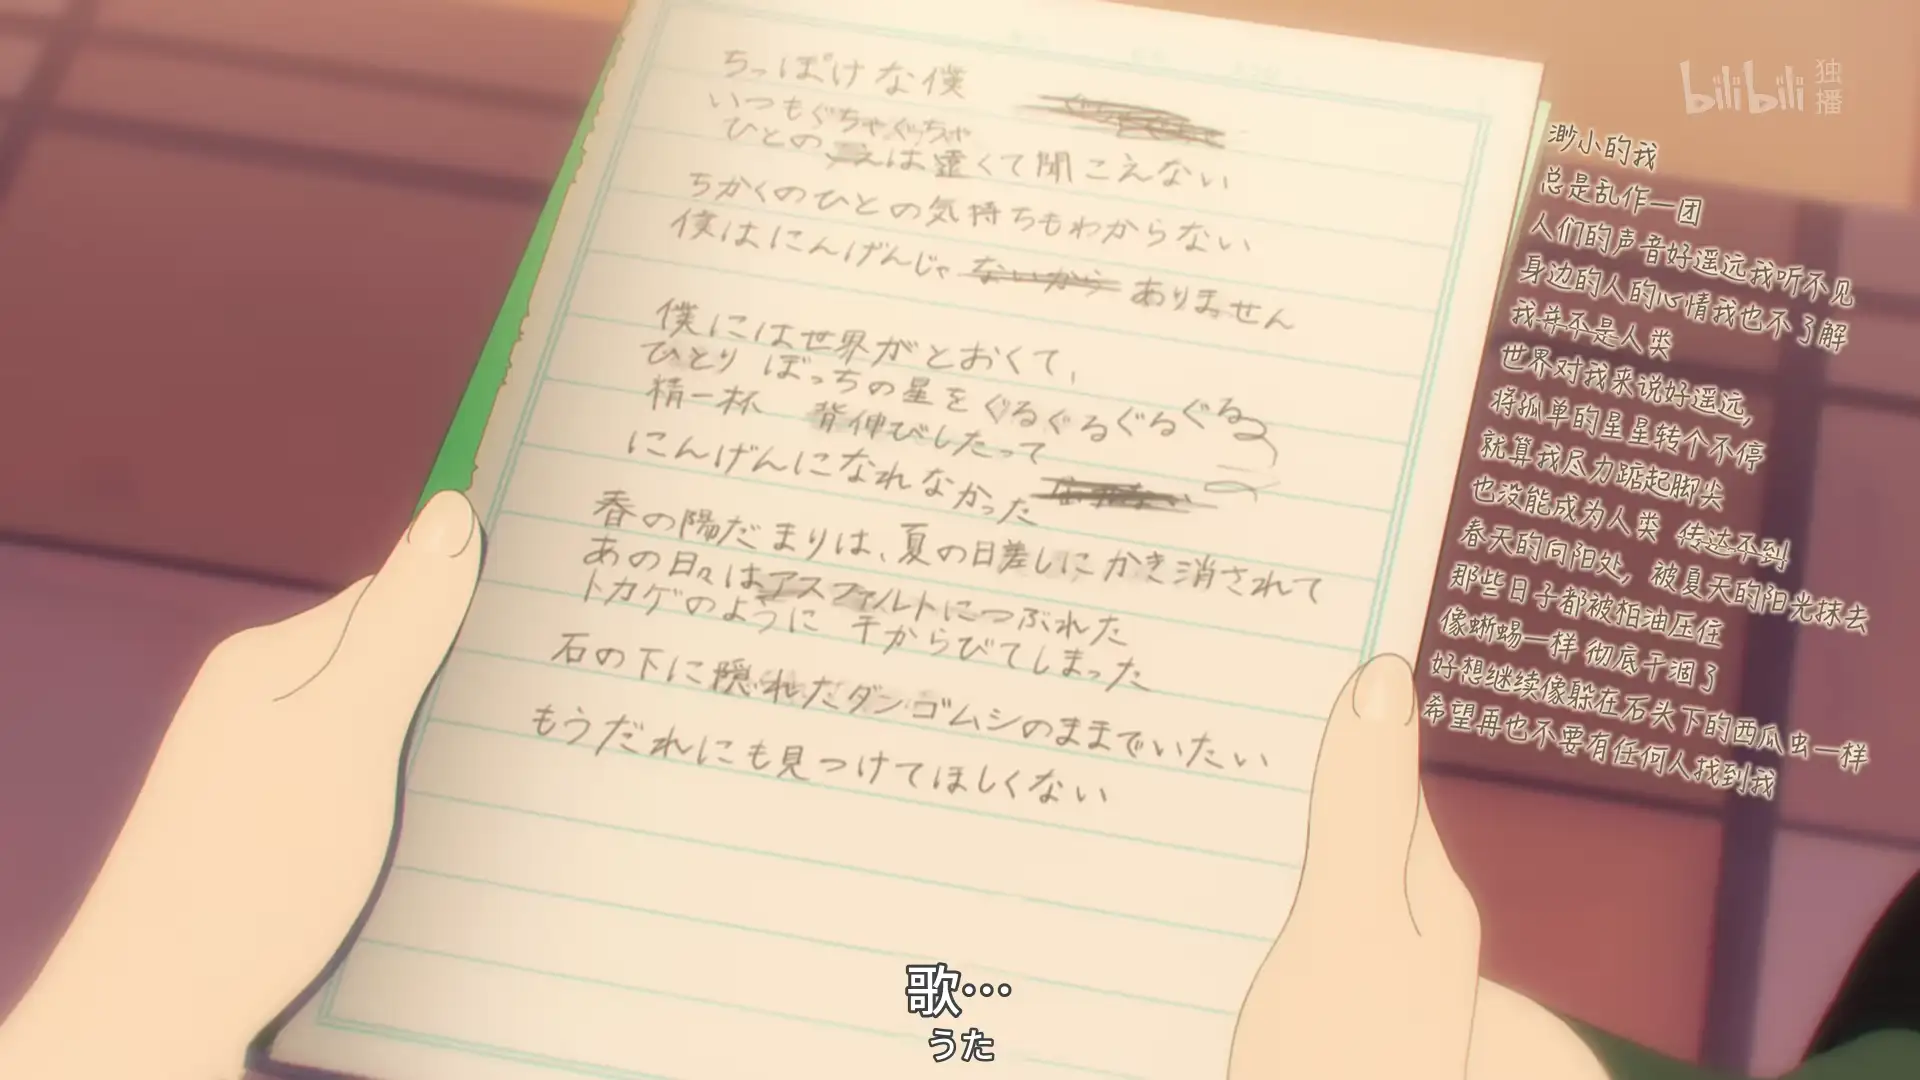 ちっぽけな僕
いつもぐちゃぐちゃ
ひとの こえは遠くて聞こえない
ちかくのひとの気持ちもわからない
僕はにんげんじゃ ないから ありません
僕には世界がとおくて、
ひとりぼっちの星をぐるぐるぐるぐる
精一杯 背伸びしたって
にんげんになれなかった
春の陽だまりは、夏の日差しにかき消されて
あの日々はアスファルトにつぶれた
トカゲのように 干からびてしまった
石の下に隠れたダンゴムシのままでいたい
もうだれにも見つけてほしくない
bilibili 独播
渺小的我
总是乱作一团
人们的声音好遥远我听不见
身边的人的心情我也不了解
我并不是人类
世界对我来说好遥远,
将孤单的星星转个不停
就算我尽力踮起脚尖
也没能成为人类 传达不到
春天的向阳处,被夏天的阳光抹去
那些日子都被柏油压住
像蜥蜴一样 彻底干涸了
好想继续像躲在石头下的西瓜虫一样
希望再也不要有任何人找到我
歌…
うた